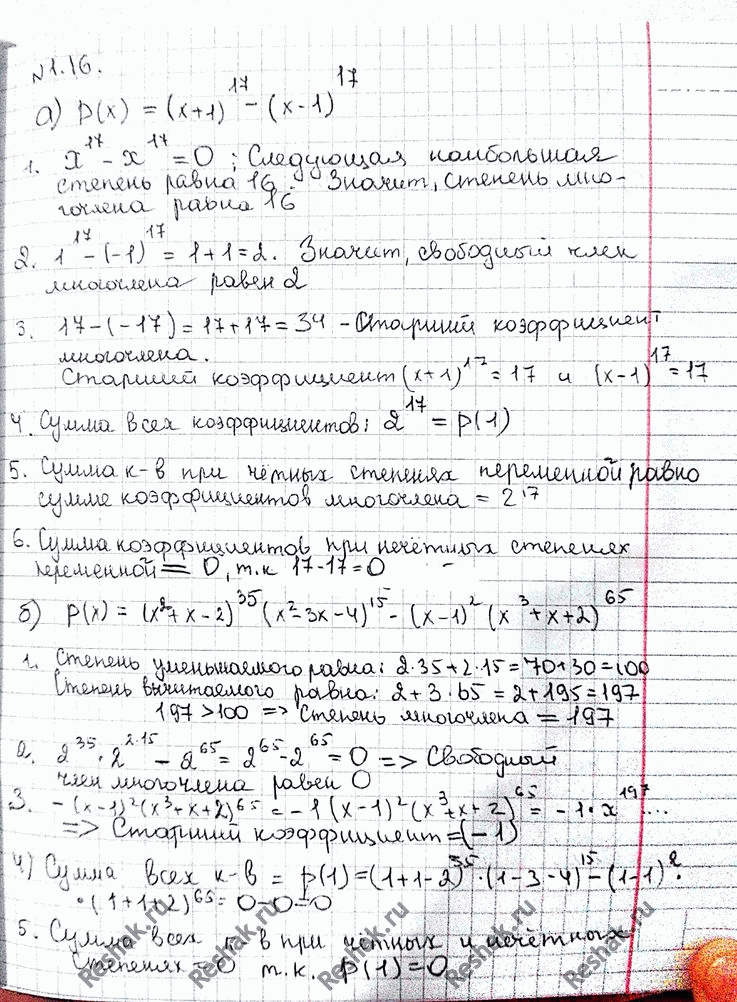 №1.16.
а) p(x) = (x+1)¹⁷ - (x-1)¹⁷
1. x¹⁷ - x¹⁷ = 0 ; Следующая наибольшая
степень равна 16. Значит, степень мно-
гочлена равна 16
2. 1¹⁷ - (-1)¹⁷ = 1+1=2. Значит, свободный член
многочлена равен 2
3. 17-(-17)=17+17=34 - Старший коэффициент
многочлена.
Старший коэффициент (x+1)¹⁷ = 17 и (x-1)¹⁷ = 17
4. Сумма всех коэффициентов: 2¹⁷ = p(1)
5. Сумма к-в при чётных степенях переменной равно
сумме коэффициентов многочлена = 2¹⁷
6. Сумма коэффициентов при нечётных степенях
переменной = 0, т.к 17-17=0
б) p(x) = (x²+x-2)³⁵(x²-3x-4)¹⁵ - (x-1)²(x³+x+2)⁶⁵
1. Степень уменьшаемого равна: 2·35+2·15=70+30=100
Степень вычитаемого равна: 2+3·65=2+195=197
197>100 => Степень многочлена = 197
2. 2³⁵·2²·¹⁵ - 2⁶⁵ = 2⁶⁵-2⁶⁵ = 0 => Свободный
член многочлена равен 0
3. -(x-1)²(x³+x+2)⁶⁵ = -1(x-1)²(x³+x+2)⁶⁵ = -1·x¹⁹⁷...
=> Старший коэффициент = (-1)
4) Сумма всех к-в = p(1)=(1+1-2)³⁵·(1-3-4)¹⁵-(1-1)²·
·(1+1+2)⁶⁵=0-0=0
5. Сумма всех к-в при чётных и нечётных
степенях = 0 т.к. p(1)=0
Reshak.ru Reshak.ru Reshak.ru Reshak.ru Reshak.ru Reshak.ru